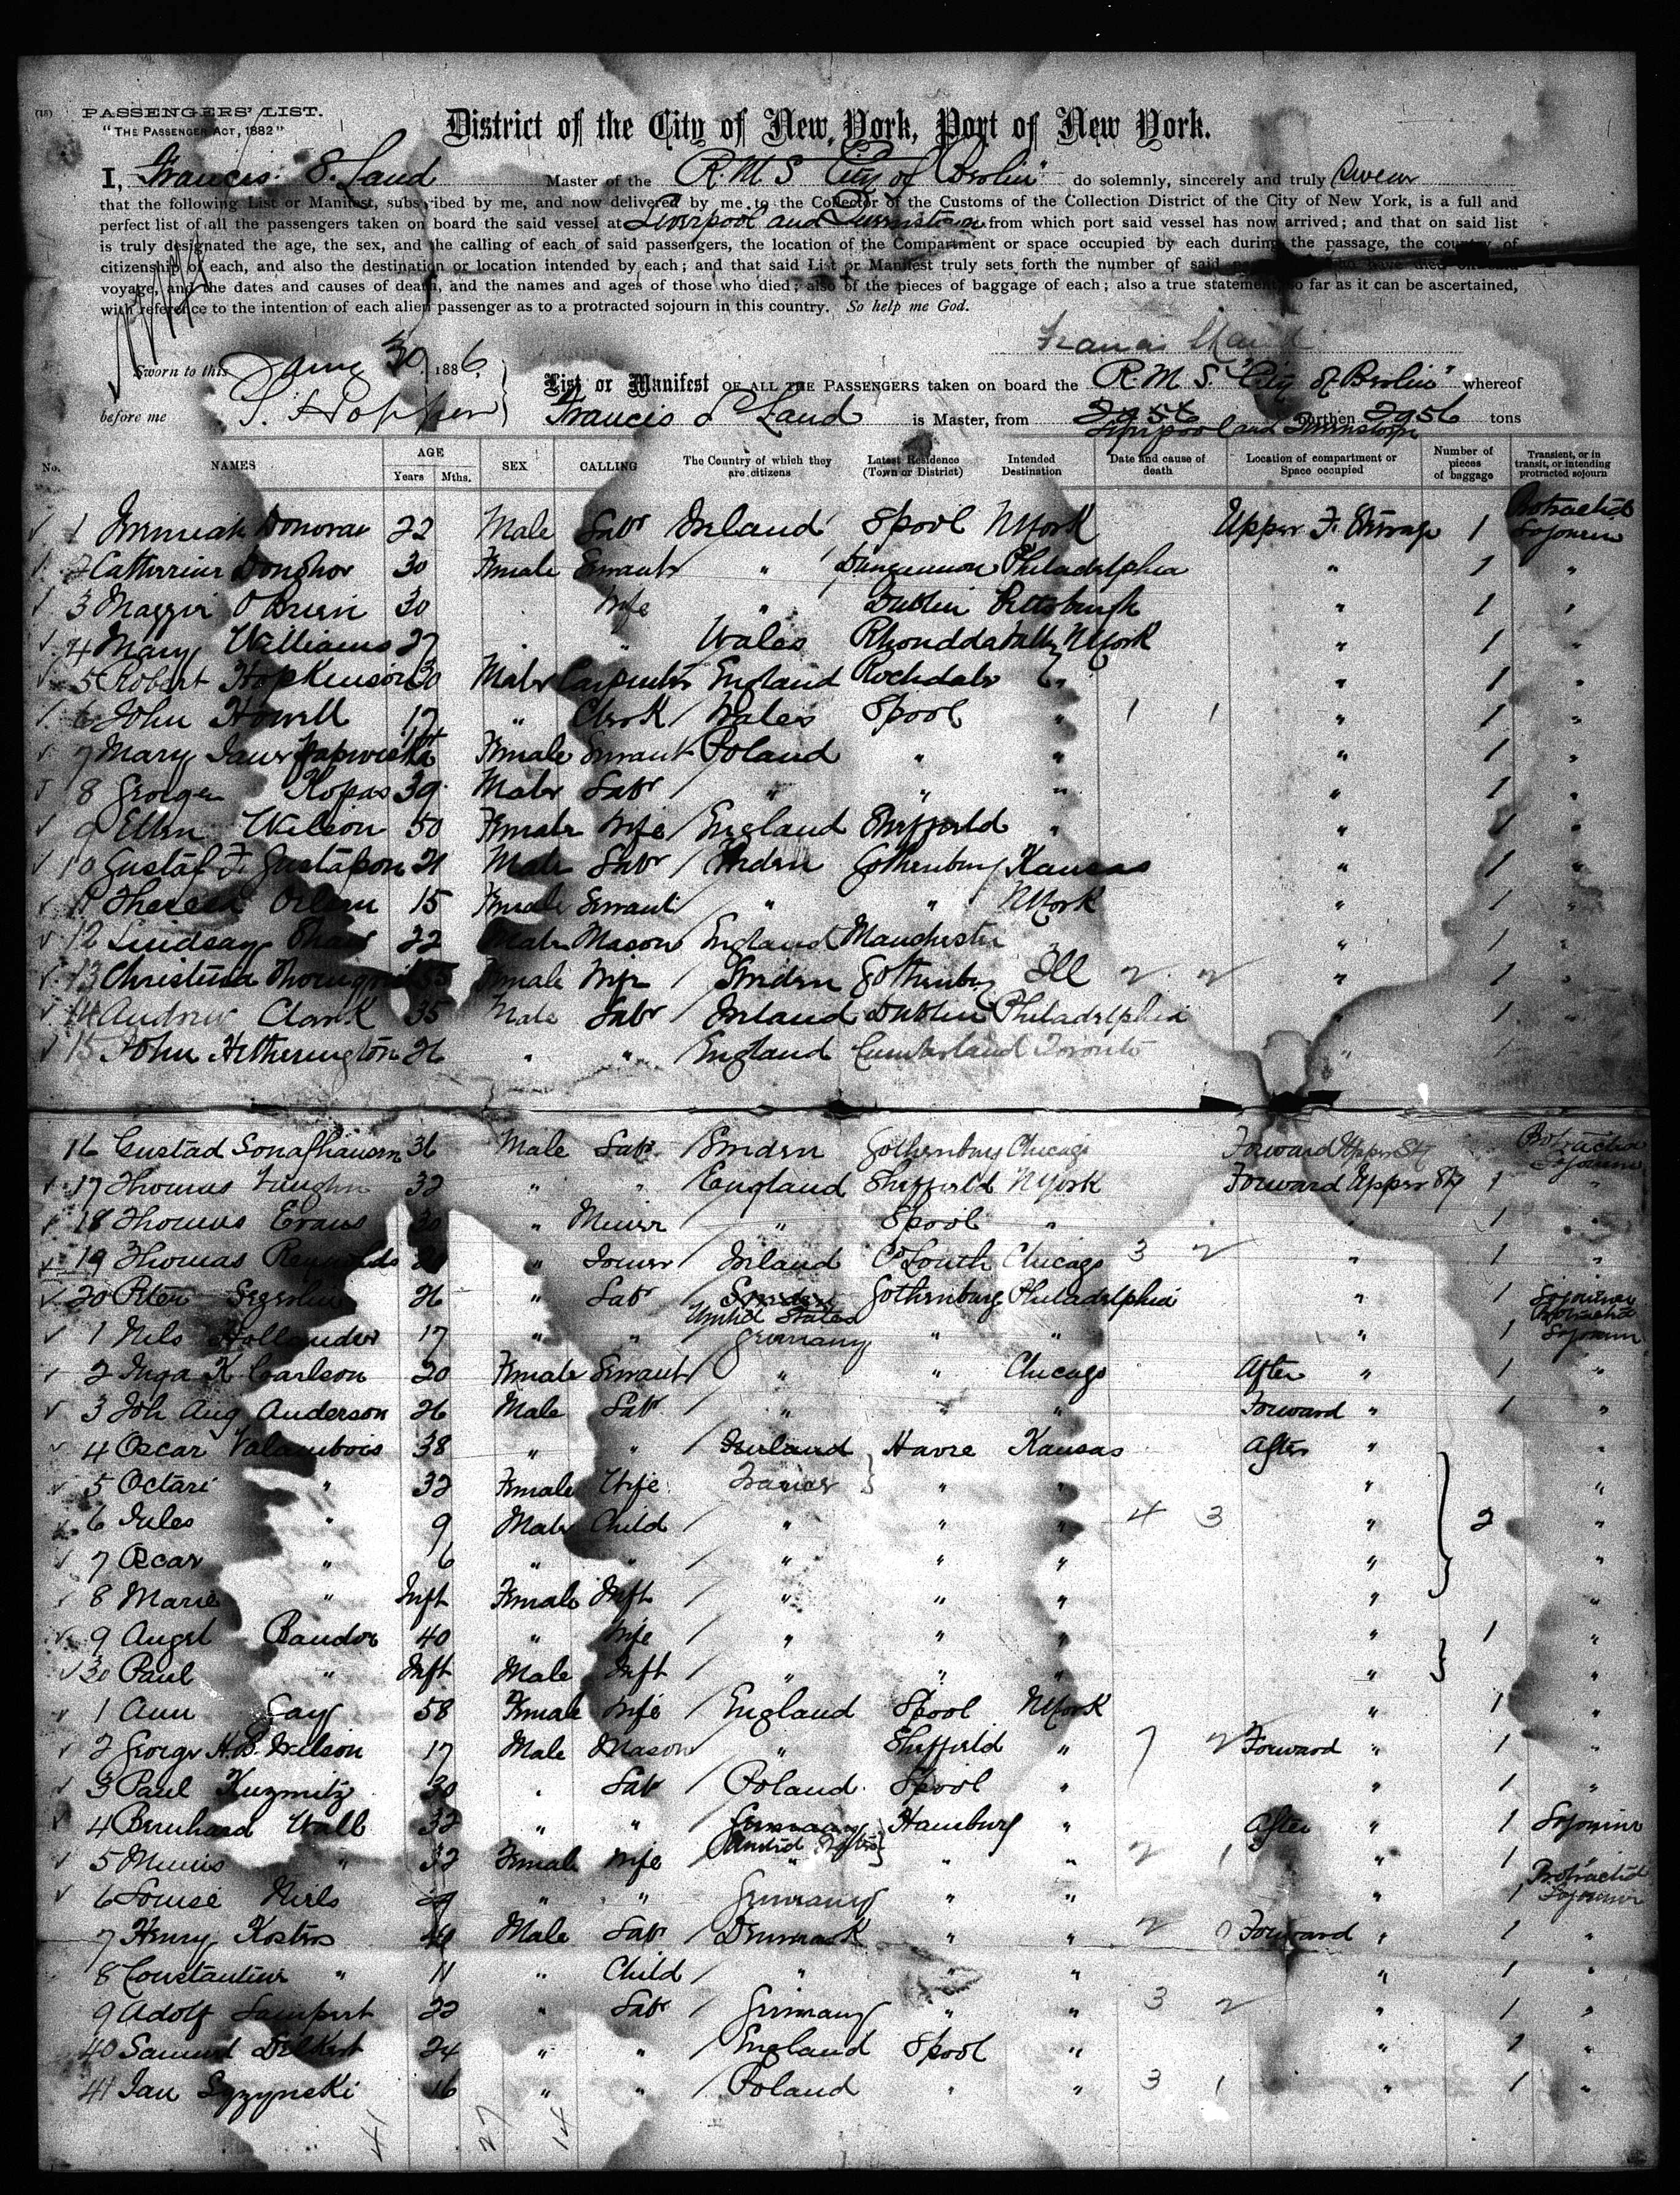 (18) PASSENGERS' LIST.
"THE PASSENGER ACT, 1882"
District of the City of New York, Port of New York.
I, Francis S. Land Master of the R.M.S "City of Berlin" do solemnly, sincerely and truly Swear
that the following List or Manifest, subscribed by me, and now delivered by me to the Collector of the Customs of the Collection District of the City of New York, is a full and
perfect list of all the passengers taken on board the said vessel at Liverpool and Queenstown from which port said vessel has now arrived; and that on said list
is truly designated the age, the sex, and the calling of each of said passengers, the location of the Compartment or space occupied by each during the passage, the country of
citizenship of each, and also the destination or location intended by each; and that said List or Manifest truly sets forth the number of said have died on
voyage, and the dates and causes of death, and the names and ages of those who died; also of the pieces of baggage of each; also a true statement, so far as it can be ascertained,
with reference to the intention of each alien passenger as to a protracted sojourn in this country. So help me God.
Francis S Land
Sworn to this Aug 30, 1886.
List or Manifest OF ALL THE PASSENGERS taken on board the R.M.S. "City of Berlin" whereof
before me Francis S Land is Master, from Liverpool and Queenstown burthen 2956 tons
No. NAMES AGE Years Mths. SEX CALLING The Country of which they are citizens Latest Residence (Town or District) Intended Destination Date and cause of death Location of compartment or Space occupied Number of pieces of baggage Transient, or in transit, or intending protracted sojourn
1 Jeremiah Donovan 22 Male Labr Ireland Lpool N York Upper F. Steerage 1 Protracted Sojourn
2 Catherine Donohoe 30 Female Servant " Dungannon Philadelphia " 1 "
3 Maggie O'Brien 30 Wife " Dublin Pittsburgh " 1 "
4 Mary Williams 27 " " Wales Rhondda Valley N York " 1 "
5 Robert Hopkinson 30 Male Carpenter England Rochdale " " 1 "
6 John Howell 17 " Clerk Wales Lpool " 1 1 " 1 "
7 Mary Female Servant Poland " " " 1 "
8 George Kopas 39 Male Labr " " " " 1 "
9 Ellen Wilson 50 Female Wife England Sheffield " " 1 "
10 Gustaf F. Gustafson 21 Male Labr Sweden Gothenburg Kansas " 1 "
11 Theresa 15 Female Servant " " N York " 1 "
12 Lindsay Shaw 22 Male Mason England Manchester " 1 "
13 Christina 55 Female Wife Sweden Gothenburg Ill 2 2 " 1 "
14 Andrew Clark 35 Male Labr Ireland Dublin Philadelphia " 1 "
15 John Hetherington 26 " " England Cumberland Toronto " 1 "
16 Gustad 36 Male Labr Sweden Gothenburg Chicago Forward Upper Stg Protracted Sojourn
17 Thomas Vaughn 32 " " England Sheffield N York Forward Upper Stg 1 "
18 Thomas Evans 30 " Miner " Lpool " " 1 "
19 Thomas Reynolds " Ireland Co Louth Chicago 3 2 " 1 "
20 Peter 26 " Labr Sweden United States Gothenburg Philadelphia " 1 Sojourn
1 Nels Hollander 17 " " Germany " " " 1 Protracted Sojourn
2 Inga K Carlson 20 Female Servant " " Chicago After " 1 "
3 Joh Aug Anderson 26 Male Labr " " " Forward " 1 "
4 Oscar Valambois 38 " " Ireland Havre Kansas After " "
5 Octavi " 32 Female Wife France " " " "
6 Jules " 9 Male Child " " " 4 3 " 2 "
7 Oscar " 6 " " " " " " "
8 Marie " Inft Female Inft " " " " "
9 Angel Baudor 40 " Wife " " " " 1 "
30 Paul " Inft Male Inft " " " " "
1 Ann Gay 58 Female Wife England Lpool N York " 1 "
2 George H. B. Wilson 17 Male Mason " Sheffield " 7 2 Forward " 1 "
3 Paul Kuzmitz 30 " Labr Poland Lpool " " 1 "
4 Bernhard Wall 32 " " Germany United States Hamburg " After " 1 Sojourn
5 " 32 Female Wife " " " 2 1 " 1 "
6 Louise Niels " " Germany " " " 1 Protracted Sojourn
7 Henry Kosters 40 Male Labr Denmark " " 2 0 Forward " 1 "
8 Constantine " 11 " Child " " " " 1 "
9 Adolf Lampert 22 " Labr Germany " " 3 2 " 1 "
40 Samuel 24 " " England Lpool " " 1 "
41 Jan Syzynski 16 " " Poland " " 3 1 " 1 "
41 27 14